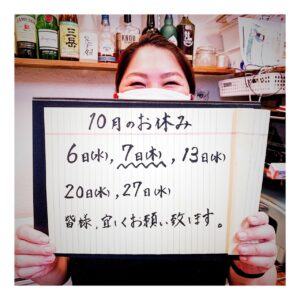 10月のお休み
6日(水), 7日(木), 13日(水)
20日(水), 27日(水)
皆様、宜しくお願い致します。